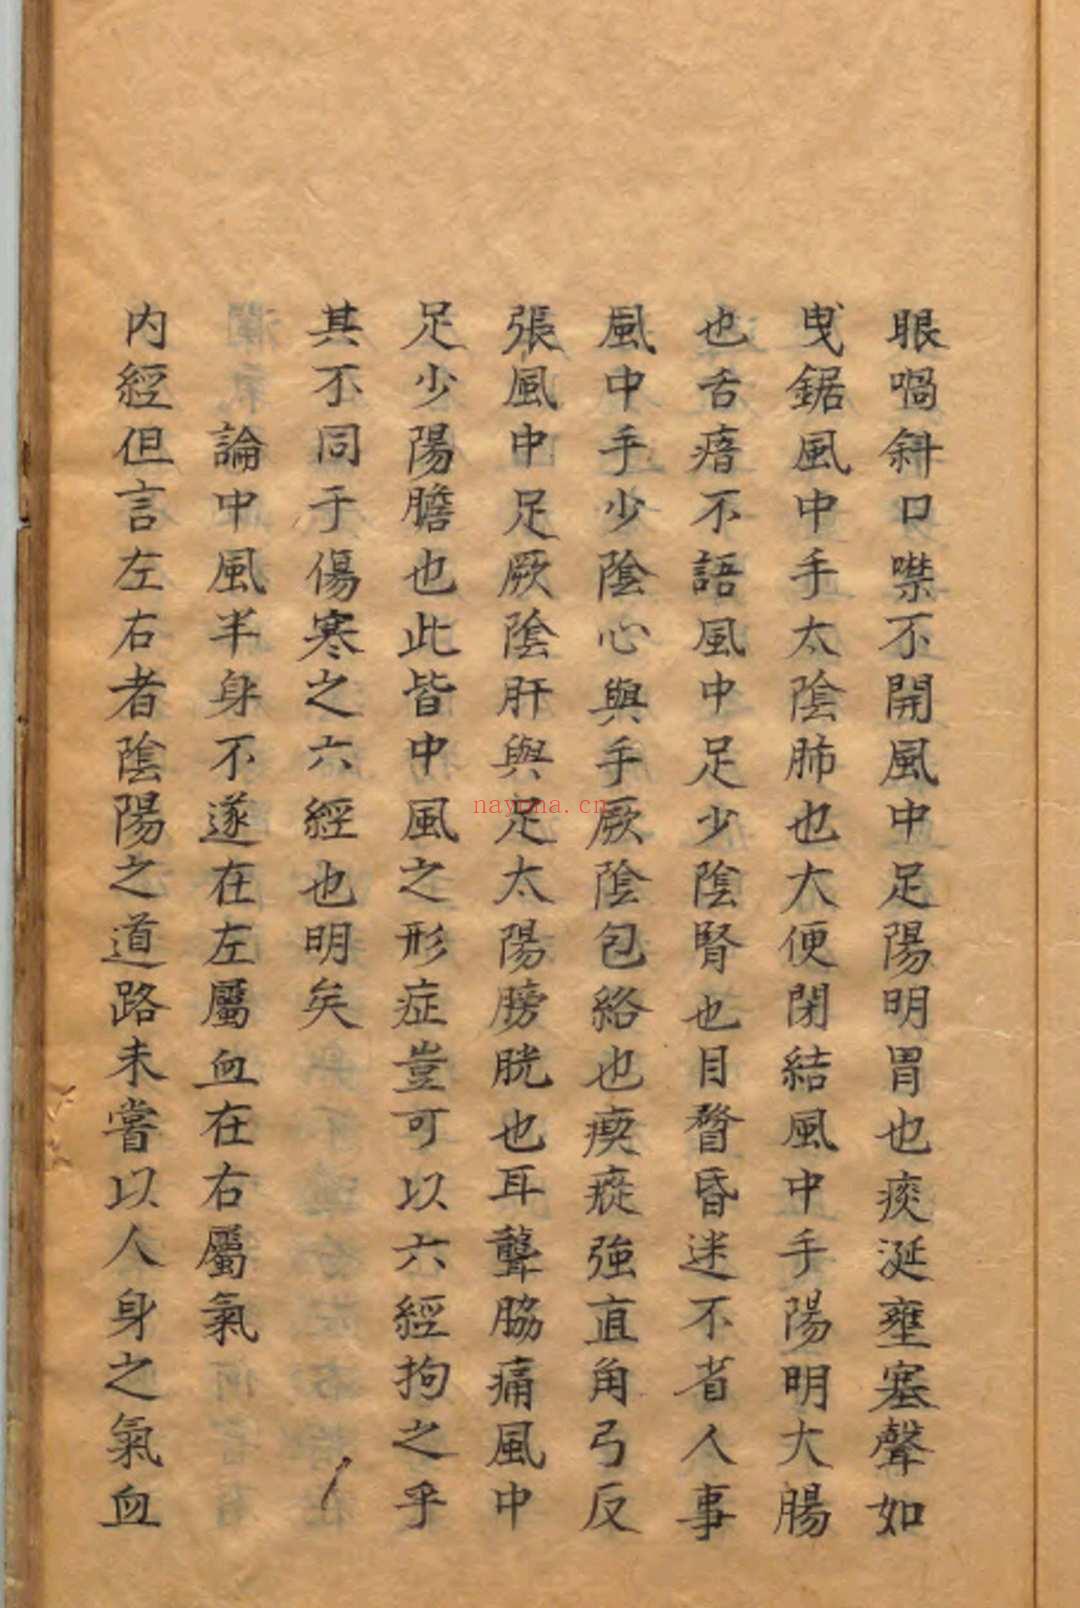 眼喎斜口噤不開風中足陽明胃也痰涎壅塞聲如
曳鋸風中手太陰肺也大便閉結風中手陽明大腸
也舌瘖不語風中足少陰腎也目瞀昏迷不省人事
風中手少陰心與手厥陰包絡也瘈瘲強直角弓反
張風中足厥陰肝與足太陽膀胱也耳聾脇痛風中
足少陽膽也此皆中風之形症豈可以六經拘之乎
其不同于傷寒之六經也明矣
論中風半身不遂在左屬血在右屬氣
内經但言左右者陰陽之道路未嘗以人身之氣血
nayona.cn